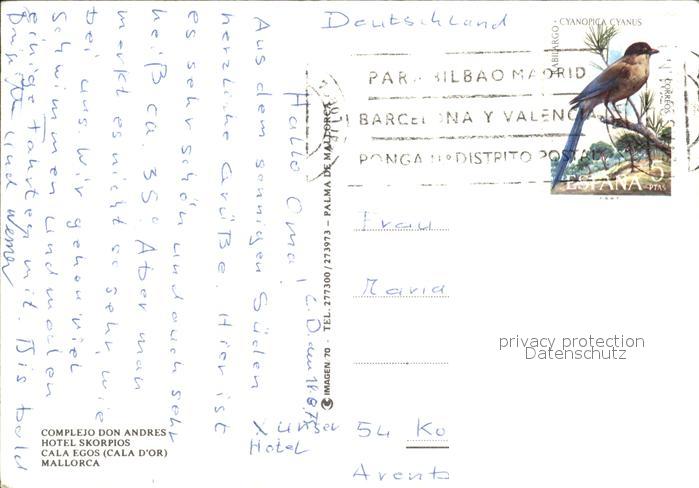 Deutschland
RABILARGO · CYANOPICA CYANUS
CORREOS
ESPAÑA
PTAS
PARA BILBAO MADRID
BARCELONA Y VALENCIA
PONGA Nº DISTRITO POSTAL
C. D. den 18.8.75
Hallo Oma!
Aus dem sonnigen Süden
herzliche Grüße. Hier ist
es sehr schön und auch sehr
heiß ca. 35° Aber man
merkt es nicht so sehr, wie
bei uns. Wir gehen viel
schwimmen und machen
einige Fahrten mit. Bis bald
und Werner
IMAGEN 70 - TEL. 277300 / 273973 - PALMA DE MALLORCA
Frau
Maria
54 Ko
Arenb
X unser
Hotel
COMPLEJO DON ANDRES
HOTEL SKORPIOS
CALA EGOS (CALA D'OR)
MALLORCA
privacy protection
Datenschutz